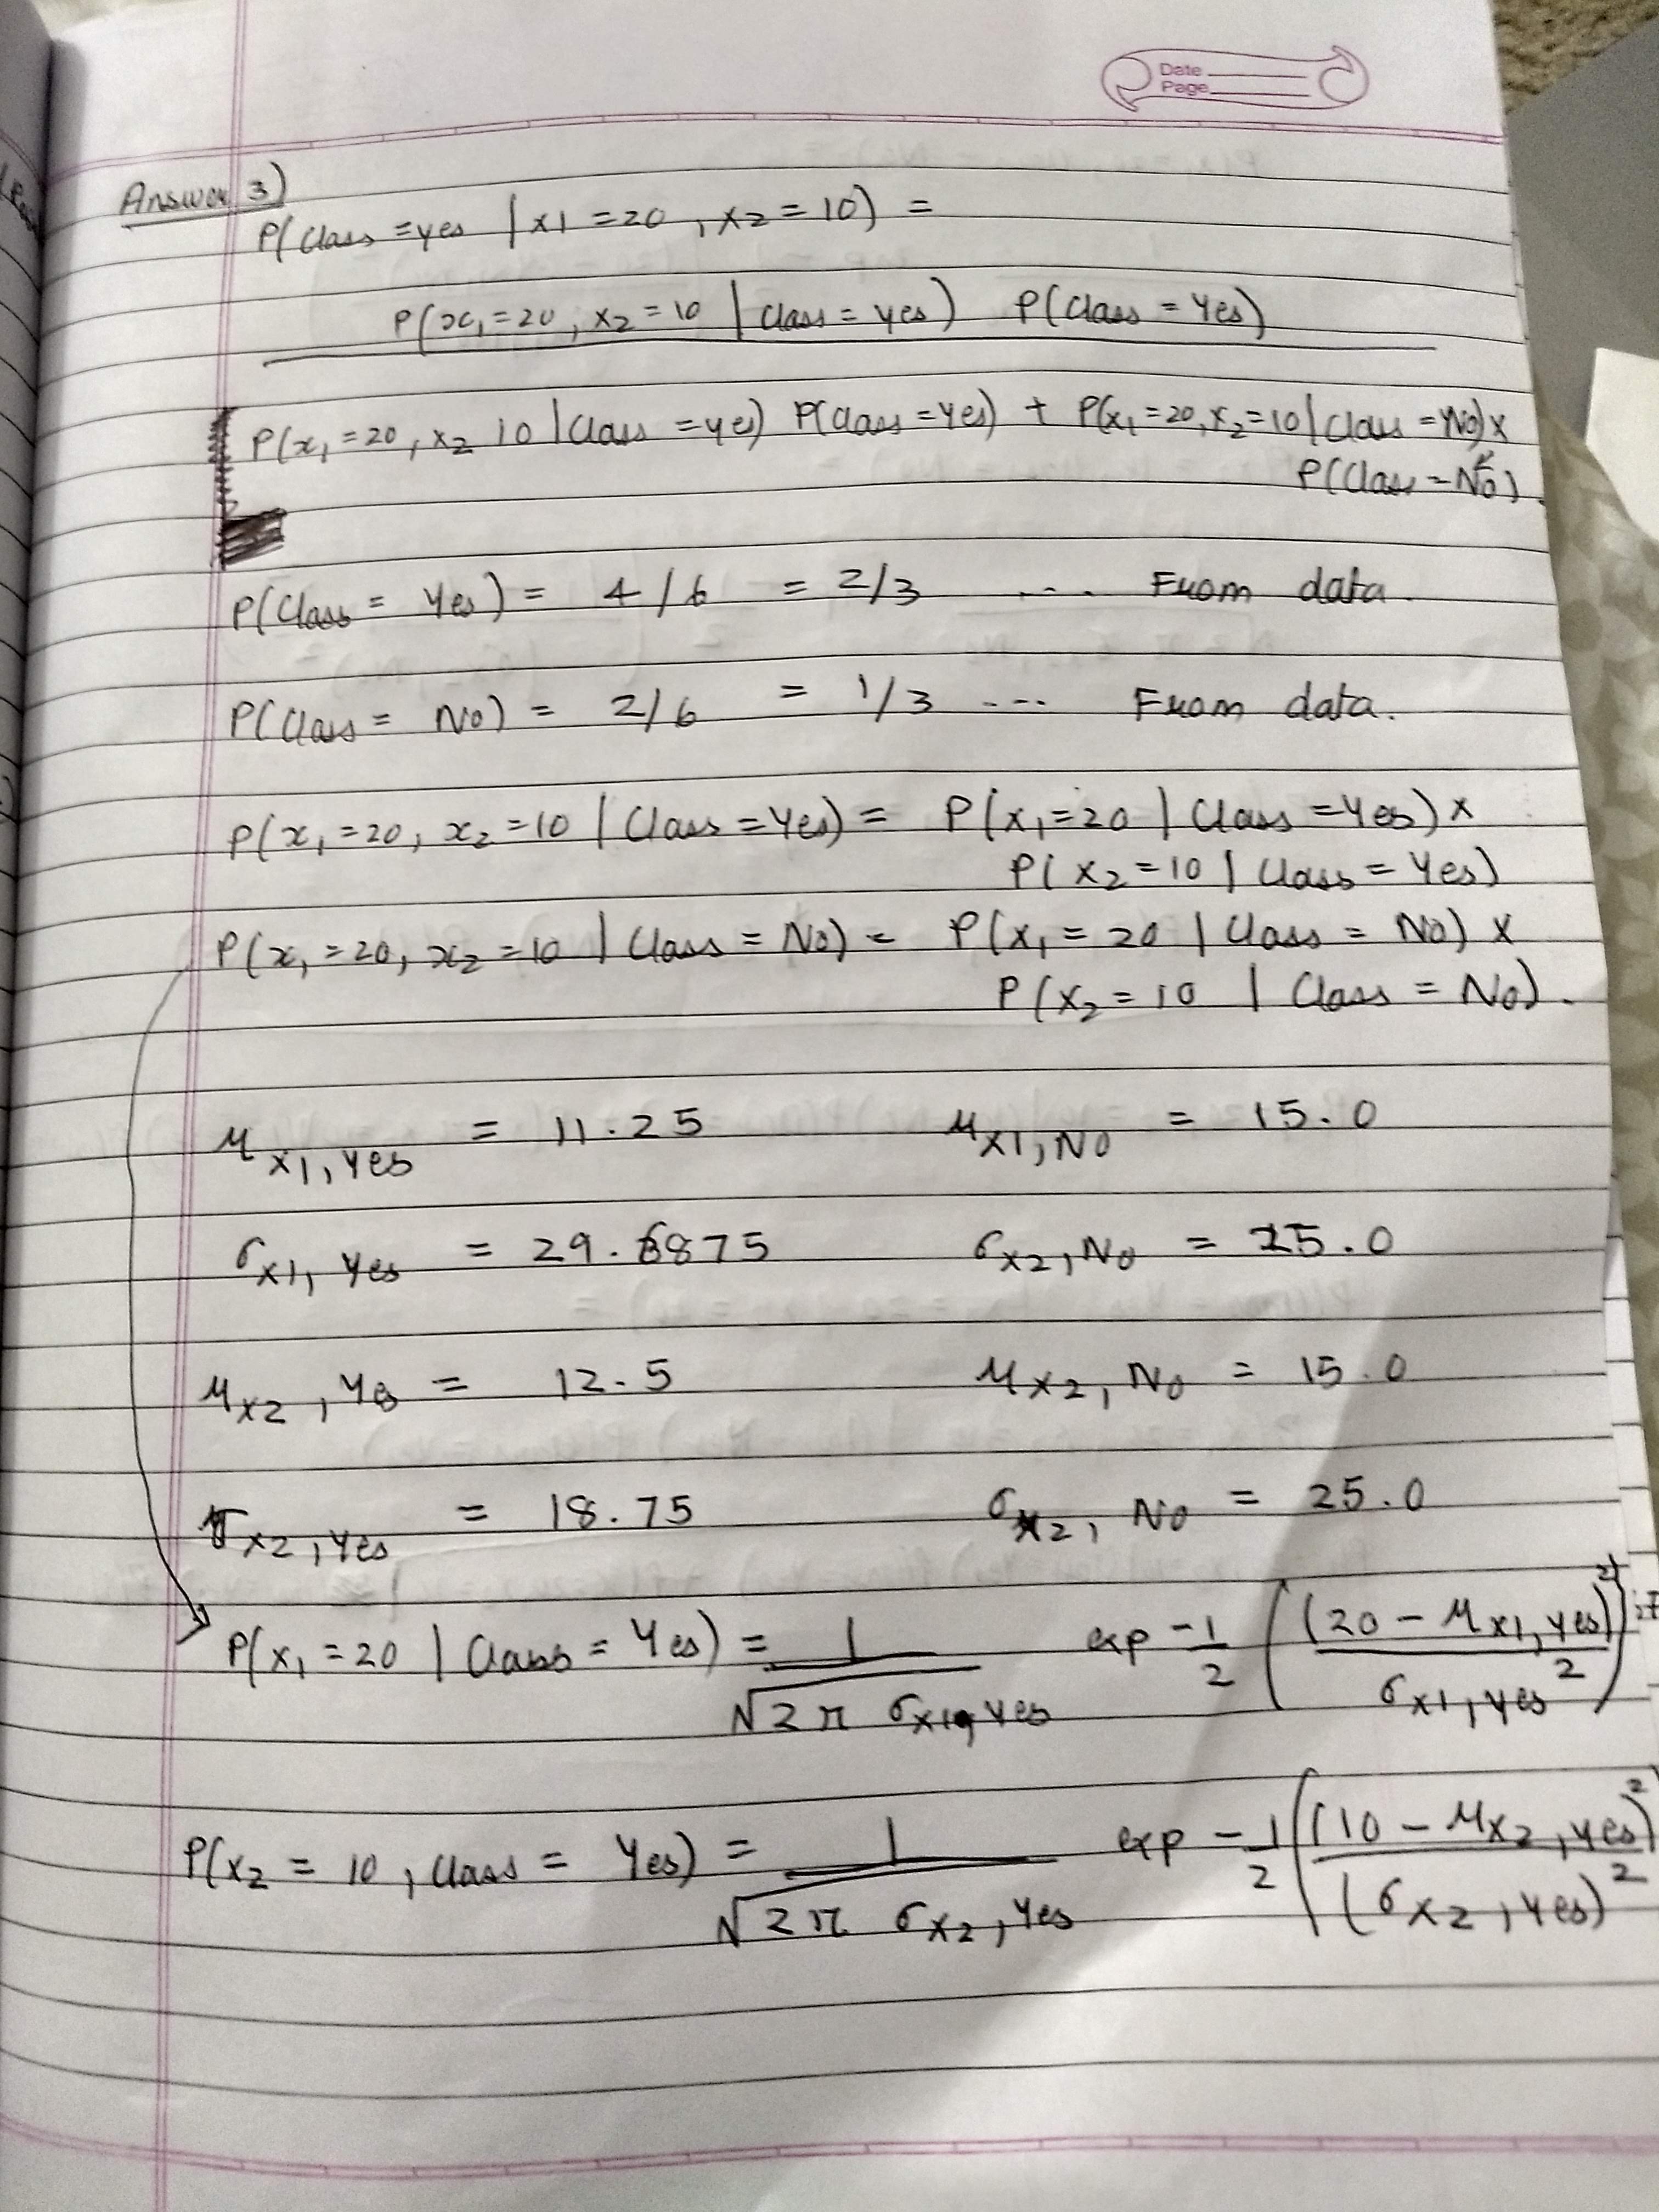 Date
Page
Answer 3)
P(Class = yes | x1 = 20, x2 = 10) =
P(x₁ = 20, x₂ = 10 | Class = yes) P(Class = Yes)
P(x₁ = 20, x₂ 10 | Class = yes) P(Class = Yes) + P(x₁ = 20, x₂ = 10 | Class = No) x
P(Class = No).
P(Class = Yes) = 4/6 = 2/3 .... From data.
P(Class = No) = 2/6 = 1/3 --- From data.
P(x₁ = 20, x₂ = 10 | Class = Yes) = P(x₁ = 20 | Class = Yes) x
P(x₂ = 10 | Class = Yes)
P(x₁ = 20, x₂ = 10 | Class = No) = P(x₁ = 20 | Class = No) x
P(x₂ = 10 | Class = No).
μ x1, Yes = 11.25 μ x1, No = 15.0
σ x1, Yes = 29.6875 σ x2, No = 25.0
μ x2, Yes = 12.5 μ x2, No = 15.0
σ x2, Yes = 18.75 σ x2, No = 25.0
P(x₁ = 20 | Class = Yes) = 1 / √2π σ x1, Yes exp -1/2 ((20 - μ x1, yes)² / σ x1, yes²)
P(x₂ = 10, Class = Yes) = 1 / √2π σ x2, Yes exp -1/2 ((10 - μ x2, yes)² / (σ x2, yes)²